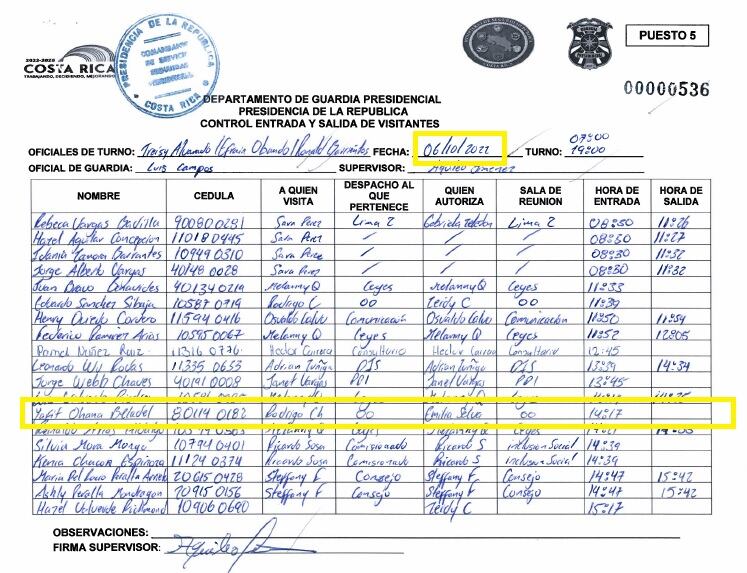 PUESTO 5
2022-2026
COSTA RICA
TRABAJANDO, DECIDIENDO, MEJORANDO
PRESIDENCIA DE LA REPUBLICA
COSTA RICA
00000536
DEPARTAMENTO DE GUARDIA PRESIDENCIAL
PRESIDENCIA DE LA REPUBLICA
CONTROL ENTRADA Y SALIDA DE VISITANTES
OFICIALES DE TURNO: Treisy Alvarado / Efrain Obando / Ronald Barrantes FECHA: 06/10/2022 TURNO: 07:00 19:00
OFICIAL DE GUARDIA: Luis Campos SUPERVISOR: Aquileo Jimenez
NOMBRE CEDULA A QUIEN VISITA DESPACHO AL QUE PERTENECE QUIEN AUTORIZA SALA DE REUNION HORA DE ENTRADA HORA DE SALIDA
Rebeca Vargas 900800281 Sara Perez Lima 2 Gabriela Lima 2 08:30 11:26
Hazel Aguilar Concepcion 110180995 Sara Perez / / / 08:30 11:27
Zamora Barrantes 109490310 Sara Perez / / / 08:30 11:32
Jorge Alberto Vargas 40148 0028 Sara Perez / / / 08:30 11:32
Juan Bravo 40134 0219 Melanny Q Leyes Melanny Q Leyes 11:33
Eduardo Sanchez Sibaja 10587 0719 Rodrigo C 00 Teidy C 00 11:39
Henry Oviedo Cordero 11594 0416 Osvaldo Calvo Comunicación Osvaldo Calvo Comunicación 11:50 11:54
Federico Ramirez Arias 10595 0067 Melanny Q Leyes Melanny Q Leyes 11:52 12:05
Nuñez Ruiz 11316 0776 Hector Carrera Consultorio Hector Carrera Consultorio 12:45
Leonardo Wu Rovas 11335 0653 Adrian Zuñiga DIS Adrian Zuñiga DIS 13:39 14:34
Jorge Webb Chaves 40191 0008 Janet Vargas PPI Janet Vargas PPI 13:45
Yafit Ohana 80114 0182 Rodrigo Ch 00 Emilia Selva 00 14:17
Silvia Mora Monge 10794 0401 Ricardo Sosa Comisionado Ricardo S Inclusion Social 14:39
Kenia Chacon Espinoza 11124 0374 Ricardo Sosa Comisionado Ricardo S Inclusion Social 14:39
Maria Peralta 20615 0428 Steffany F Consejo Steffany F Consejo 14:47 15:42
Ashly Peralta Mondragon 20915 0156 Steffany F Consejo Steffany F Consejo 14:47 15:42
Hazel Valverde Richmond 10906 0690 Teidy C 15:17
OBSERVACIONES:
FIRMA SUPERVISOR: